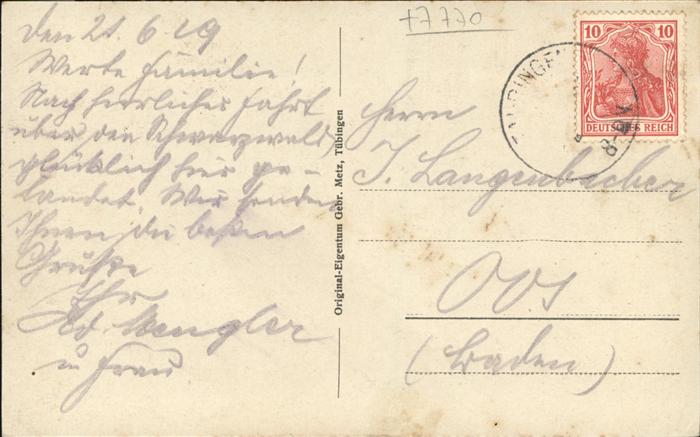 den 21. 6. 19
Werte Familie!
Nach herrlicher Fahrt
über den Schwarzwald
glücklich hier ge-
landet. Wir senden
Ihnen die besten
Grüße
Ihr
Ad. Wengler
u Frau
Original-Eigentum Gebr. Metz, Tübingen
+7770
10 10
DEUTSCHES REICH
Herrn
J. Langenbacher
Oos
(Baden)